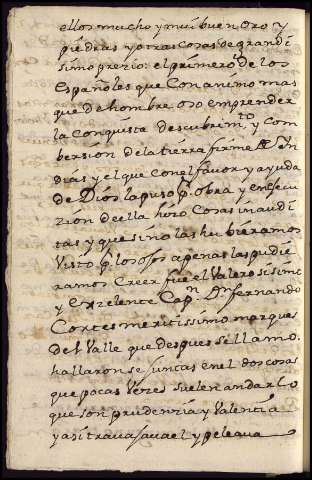 ellos mucho y mui buen oro y
piedras y otras cosas de grandi
simo prezio: el primero de los
Españoles que con animo mas
que de hombre oso emprender
la Conquista descubrim.to y com
bersion de la tierra firme de Yn
dias y el que con el favor y ayuda
de Dios la puso p.r obra y en execu
zion de ella hizo Cosas inaudi
tas y que sino las hubieramos
Visto p.r los ojos apenas las pudie
ramos Creer fue el Valerosisimo
y Exzelente Cap.n D.n fernando
Cortes meritissimo marques
del Valle que despues se llamo:
hallaronse juntas en el dos cosas
que pocas Vezes suelen andar lo
que son prudenzia y Valentia
y asi travajava el y peleava